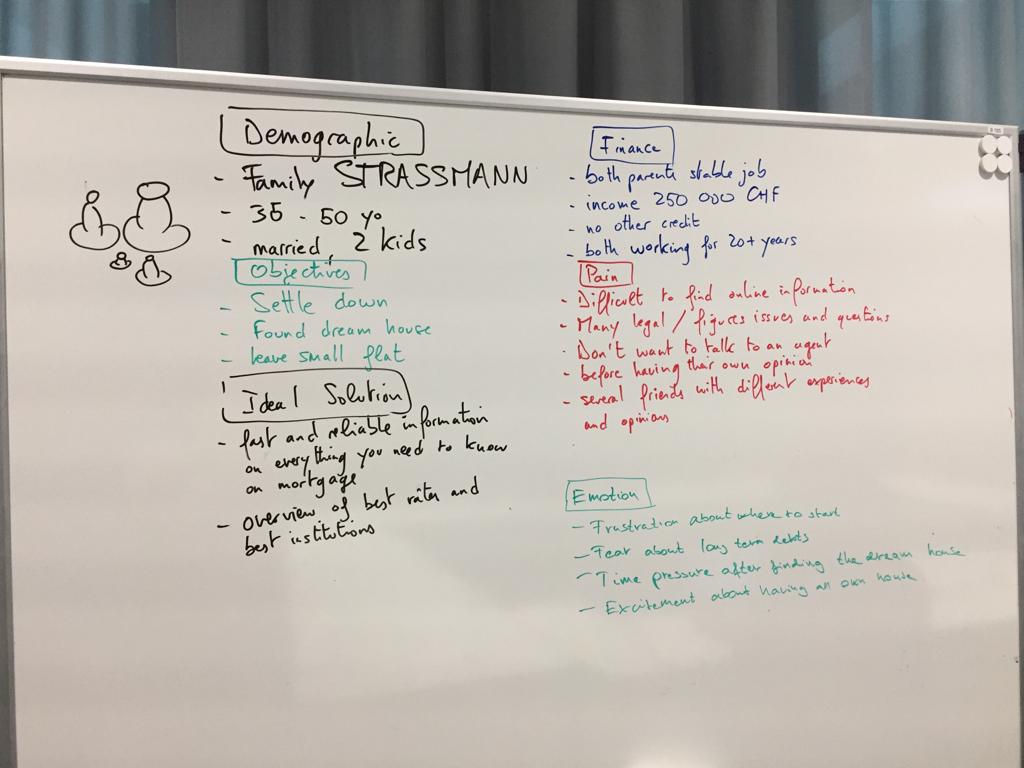 Demographic
- Family STRASSMANN
- 35 - 50 yo
- married, 2 kids
Objectives
- Settle down
- Found dream house
- leave small flat
Ideal Solution
- fast and reliable information
on everything you need to know
on mortgage
- overview of best rates and
best institutions
Finance
- both parents stable job
- income 250 000 CHF
- no other credit
- both working for 20+ years
Pain
- Difficult to find online information
- Many legal / figures issues and questions
- Don't want to talk to an agent
- before having their own opinion
- several friends with different experiences
and opinions
Emotion
- Frustration about where to start
- Fear about long term debts
- Time pressure after finding the dream house
- Excitement about having an own house